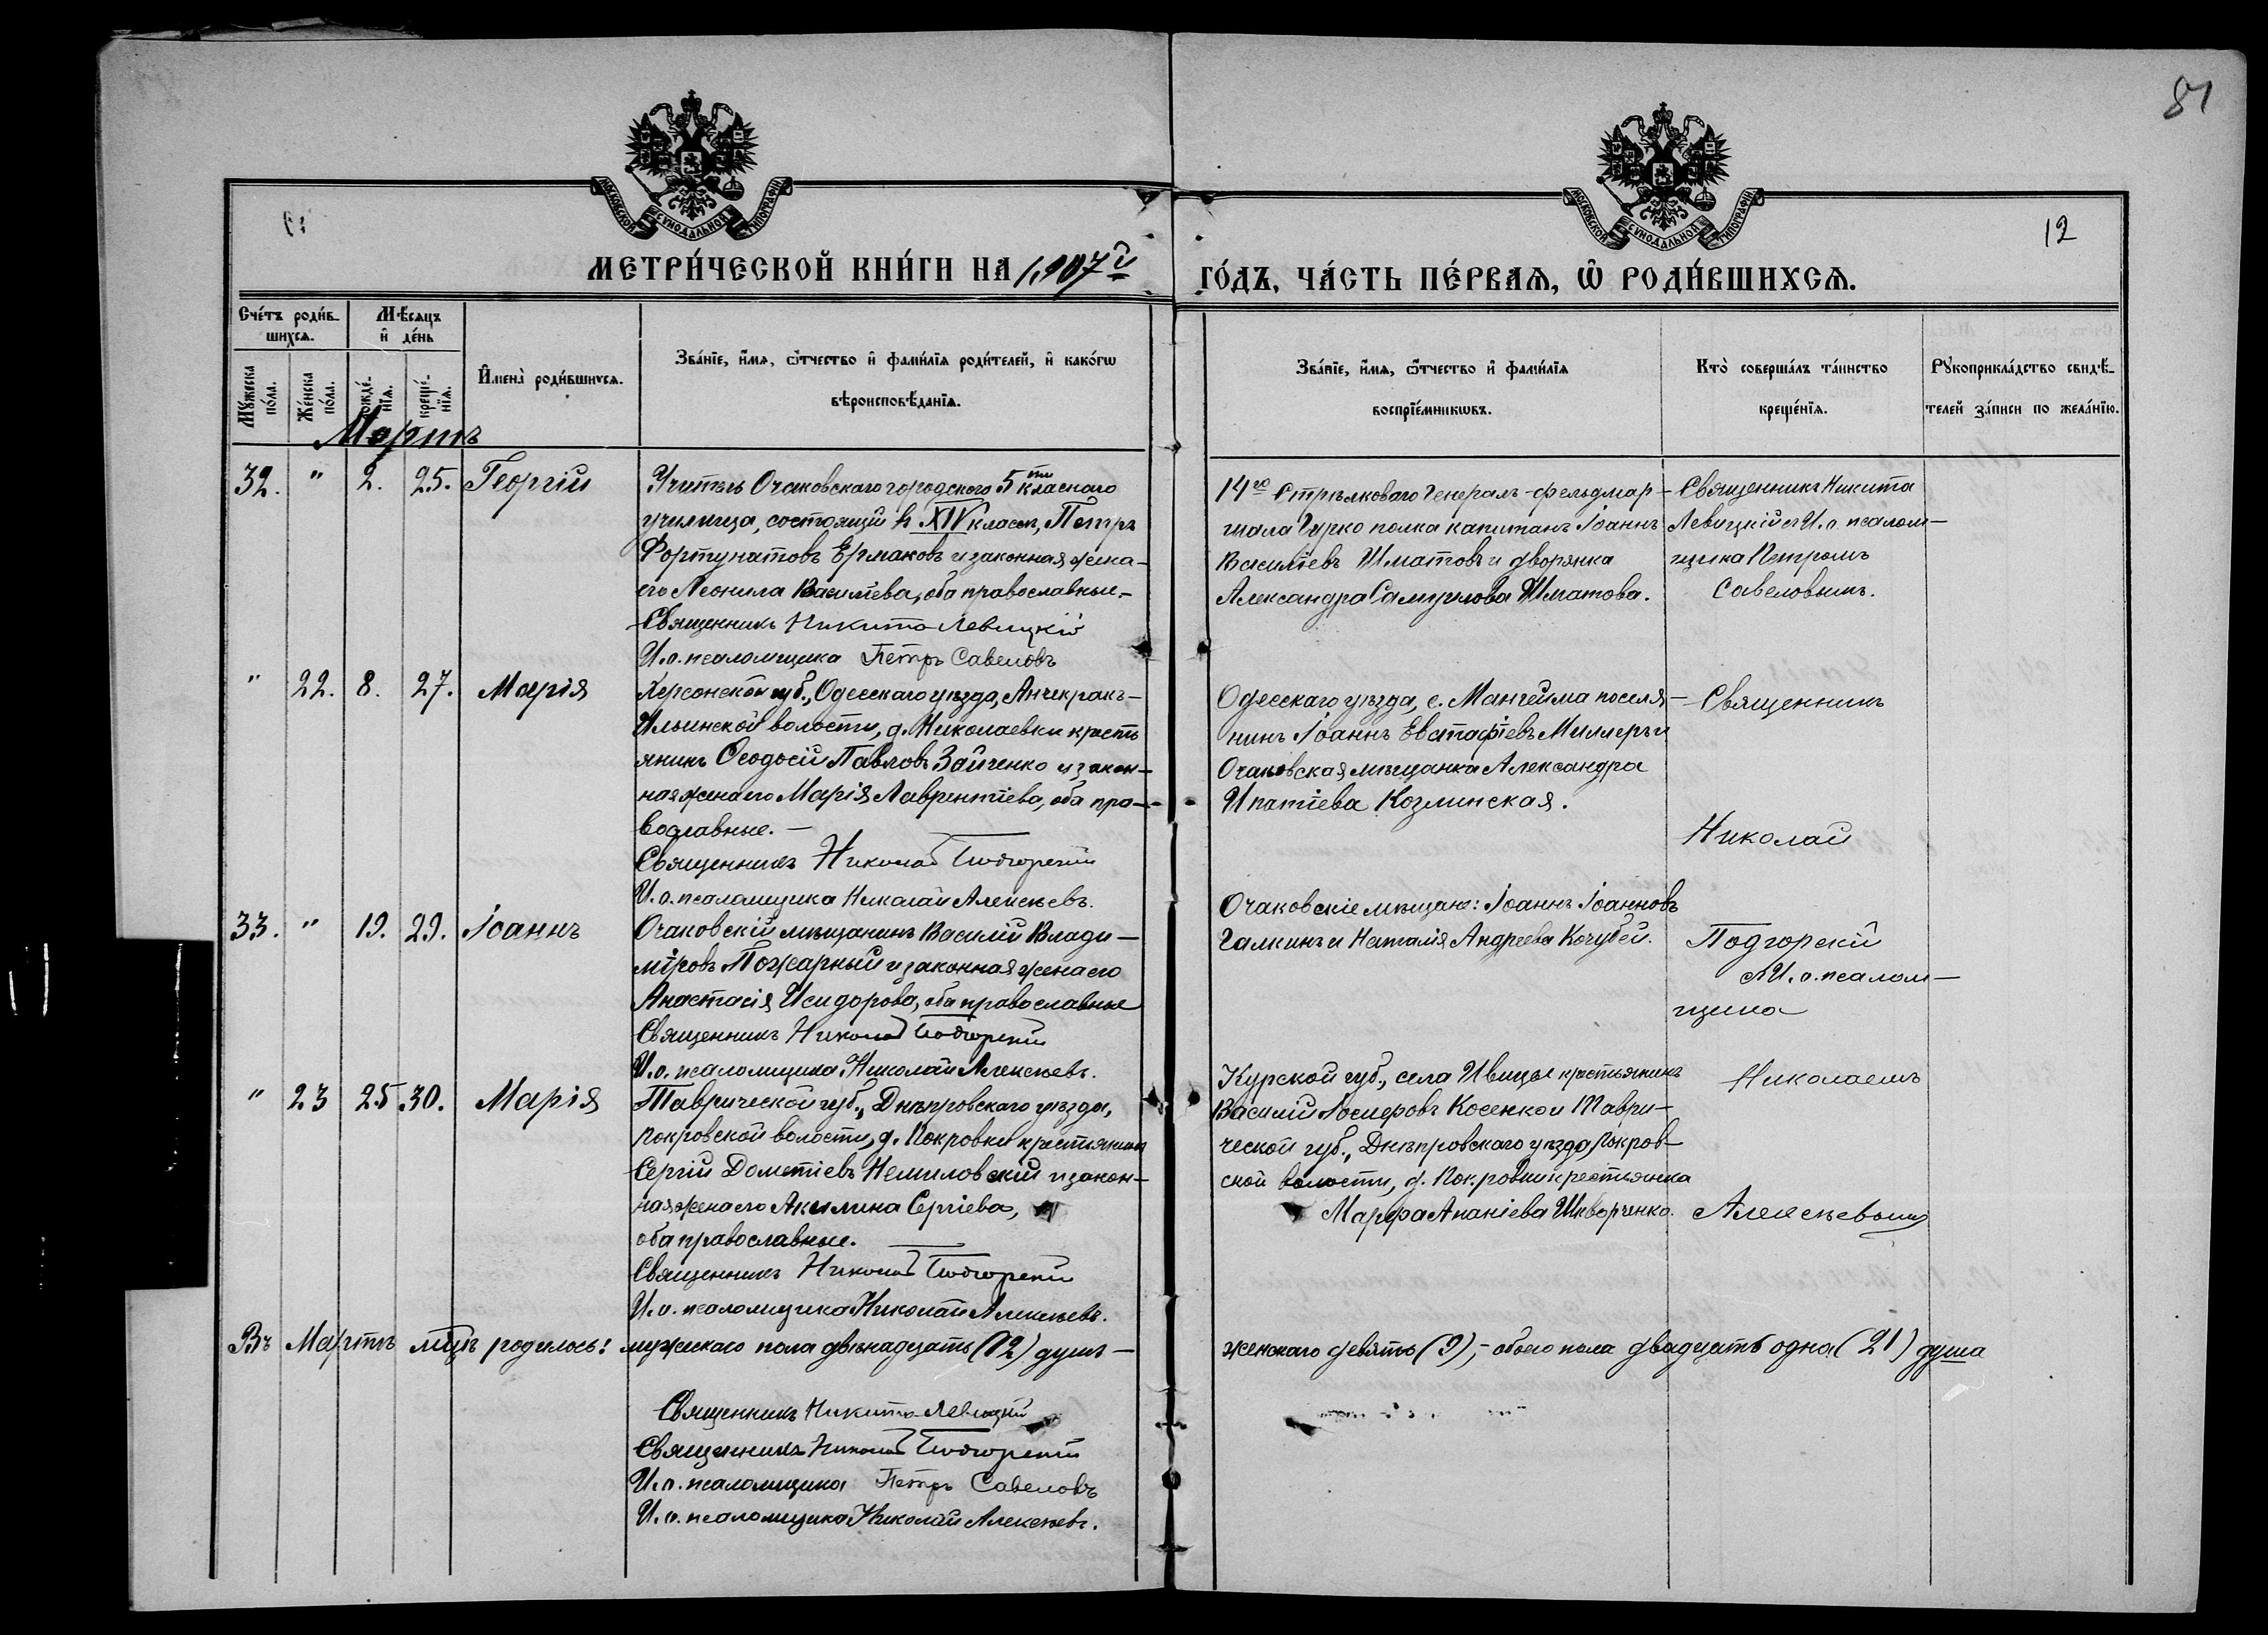 81
12
МОСКОВСКОЙ СУНОДАЛЬНОЙ ТИПОГРАФІИ
МОСКОВСКОЙ СУНОДАЛЬНОЙ ТИПОГРАФІИ
МЕТРИ́ЧЕСКОЙ КНИ́ГИ НА 1907й
ГО́ДЪ, ЧА́СТЬ ПЕ́РВАѦ, Ѽ РОДИ́ВШИХСѦ.
Сче́тъ роди́в-
шихсѧ.
Мꙋ́жеска по́ла.
Же́нска по́ла.
Мѣ́сѧцъ
и҆ де́нь
рожде́-
нїѧ.
креще́-
нїѧ.
И҆мена̀ роди́вшихсѧ.
Зва́нїе, и҆́мѧ, ѻ҆́тчество и҆ фами́лїѧ роди́телей, и҆ како́гѡ
вѣроисповѣ́данїѧ.
Зва́нїе, и҆́мѧ, ѻ҆́тчество и҆ фами́лїѧ
воспрїе́мникѡвъ.
Кто̀ соверша́лъ та́инство
креще́нїѧ.
Рꙋкоприкла́дство свидѣ́-
телей за́писи по жела́нїю.
Мартъ
32. " 2. 25. Георгій
Учитель Очаковскаго городского 5ти класнаго
училища, состоящій в XIV классѣ, Петръ
Фортунатовъ Ермаковъ и законная жена
его Леонила Васильева, оба православные.-
Священникъ Никита Левицкій
И.о. псаломщика Петръ Савеловъ
14го Стрѣлковаго Генералъ-фельдмар-
шала Гурко полка капитанъ Іоаннъ
Васильевъ Шматовъ и дворянка
Александра Самуилова Шматова.
Священникъ Никита
Левицкій съ И.о. псалом-
щика Петромъ
Савеловымъ.
" 22. 8. 27. Марія
Херсонской губ., Одесскаго уѣзда, Анчекракъ-
Ильинской волости, д. Николаевки кресть
янинъ Ѳеодосій Павловъ Зайченко и закон-
ная жена его Марія Лаврентіева, оба пра-
вославные.-
Священникъ Николай Подгорскій
И.о. псаломщика Николай Алексѣевъ.
Одесскаго уѣзда, с. Мангейма поселя-
нинъ Іоаннъ Евстафіевъ Миллеръ и
Очаковская мѣщанка Александра
Ипатіева Козлинская.
Священникъ
Николай
33. " 19. 29. Іоаннъ
Очаковскій мѣщанинъ Василій Влади-
міровъ Пожарный и законная жена его
Анастасія Исидорова, оба православные
Священникъ Николай Подгорскій
И.о. псаломщика Николай Алексѣевъ.
Очаковскіе мѣщане: Іоаннъ Іоанновъ
Галкинъ и Наталія Андреева Кочубей.
Подгорскій
съ И.о. псалом-
щика
" 23 25. 30. Марія
Таврической губ., Днѣпровскаго уѣзда,
Покровской волости, д. Покровки крестьянинъ
Сергій Дометіевъ Немиловскій и закон-
ная жена его Акилина Сергіева,
оба православные.
Священникъ Николай Подгорскій
И.о. псаломщика Николай Алексѣевъ.
Курской губ., села Ивицы крестьянинъ
Василій Косенко и Таври-
ческой губ., Днѣпровскаго уѣзда, Покров-
ской волости, д. Покровки крестьянка
Марфа Ананіева Шкворченко.
Николаемъ
Алексѣевымъ
Въ Мартѣ мцѣ родилось: мужескаго пола двѣнадцать (12) душъ -
женскаго девять (9), - обоего пола двадцать одна (21) душа
Священникъ Никита Левицкій
Священникъ Николай Подгорскій
И.о. псаломщика Петръ Савеловъ
И.о. псаломщика Николай Алексѣевъ.